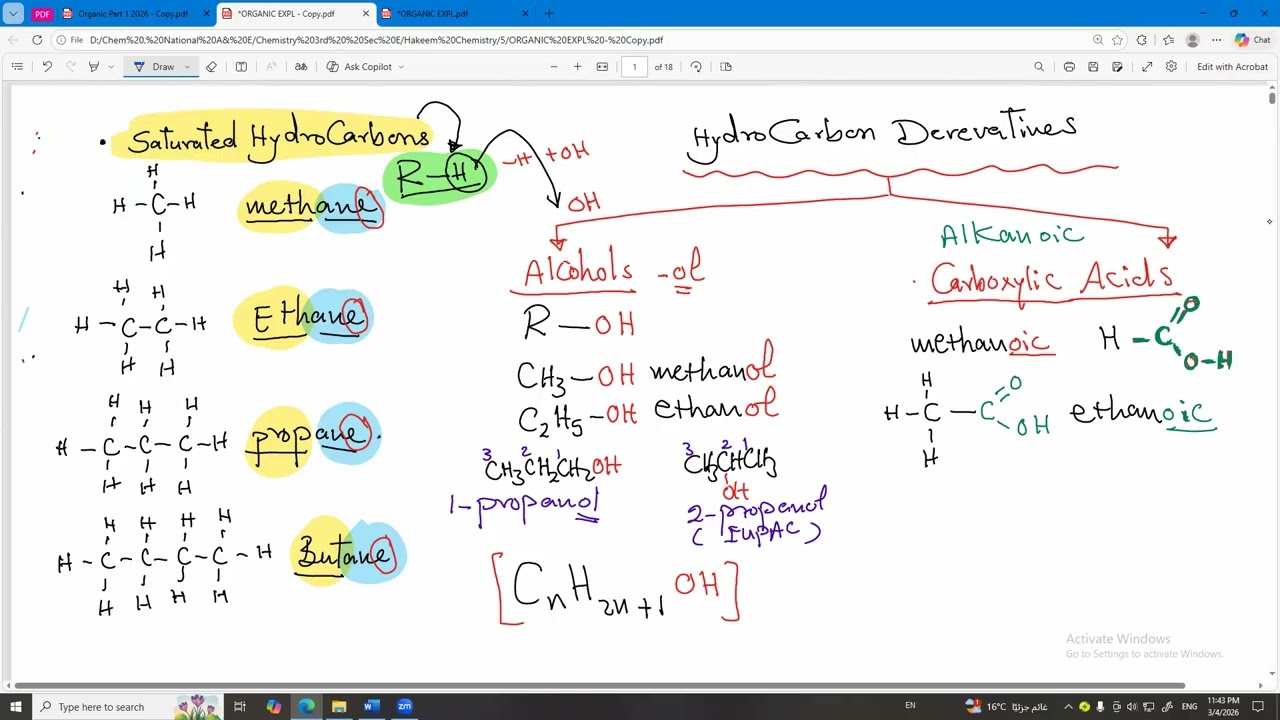 PDF
Organic Part 1 2026 - Copy.pdf
*ORGANIC EXPL - Copy.pdf
*ORGANIC EXPL.pdf
File
D:/Chem%20.%20National%20A&%20E/Chemistry%203rd%20%20Sec%20E/Hakeem%20Chemistry/5/ORGANIC%20EXPL%20-%20Copy.pdf
Chat
Draw
Ask Copilot
1 of 18
Edit with Acrobat
Saturated HydroCarbons
R-H
-H +OH
OH
HydroCarbon Derevatines
H
H - C - H
H
methane
H H
H - C - C - H
H H
Ethane
H H H
H - C - C - C - H
H H H
propane.
H H H H
H - C - C - C - C - H
H H H H
Butane
Alcohols -ol
R — OH
CH3 — OH methanol
C2H5 - OH ethanol
3 2 1
CH3CH2CH2OH
1-propanol
3 2 1
CH3CHCH3
OH
2-propanol
( IupAC )
[CnH2n+1 OH]
Alkanoic
Carboxylic Acids
methanoic
H - C
O
O-H
H
H - C — C
H
O
OH
ethanoic
Activate Windows
Go to Settings to activate Windows.
Type here to search
EN
16°C غائم جزئيًا
11:43 PM
3/4/2026